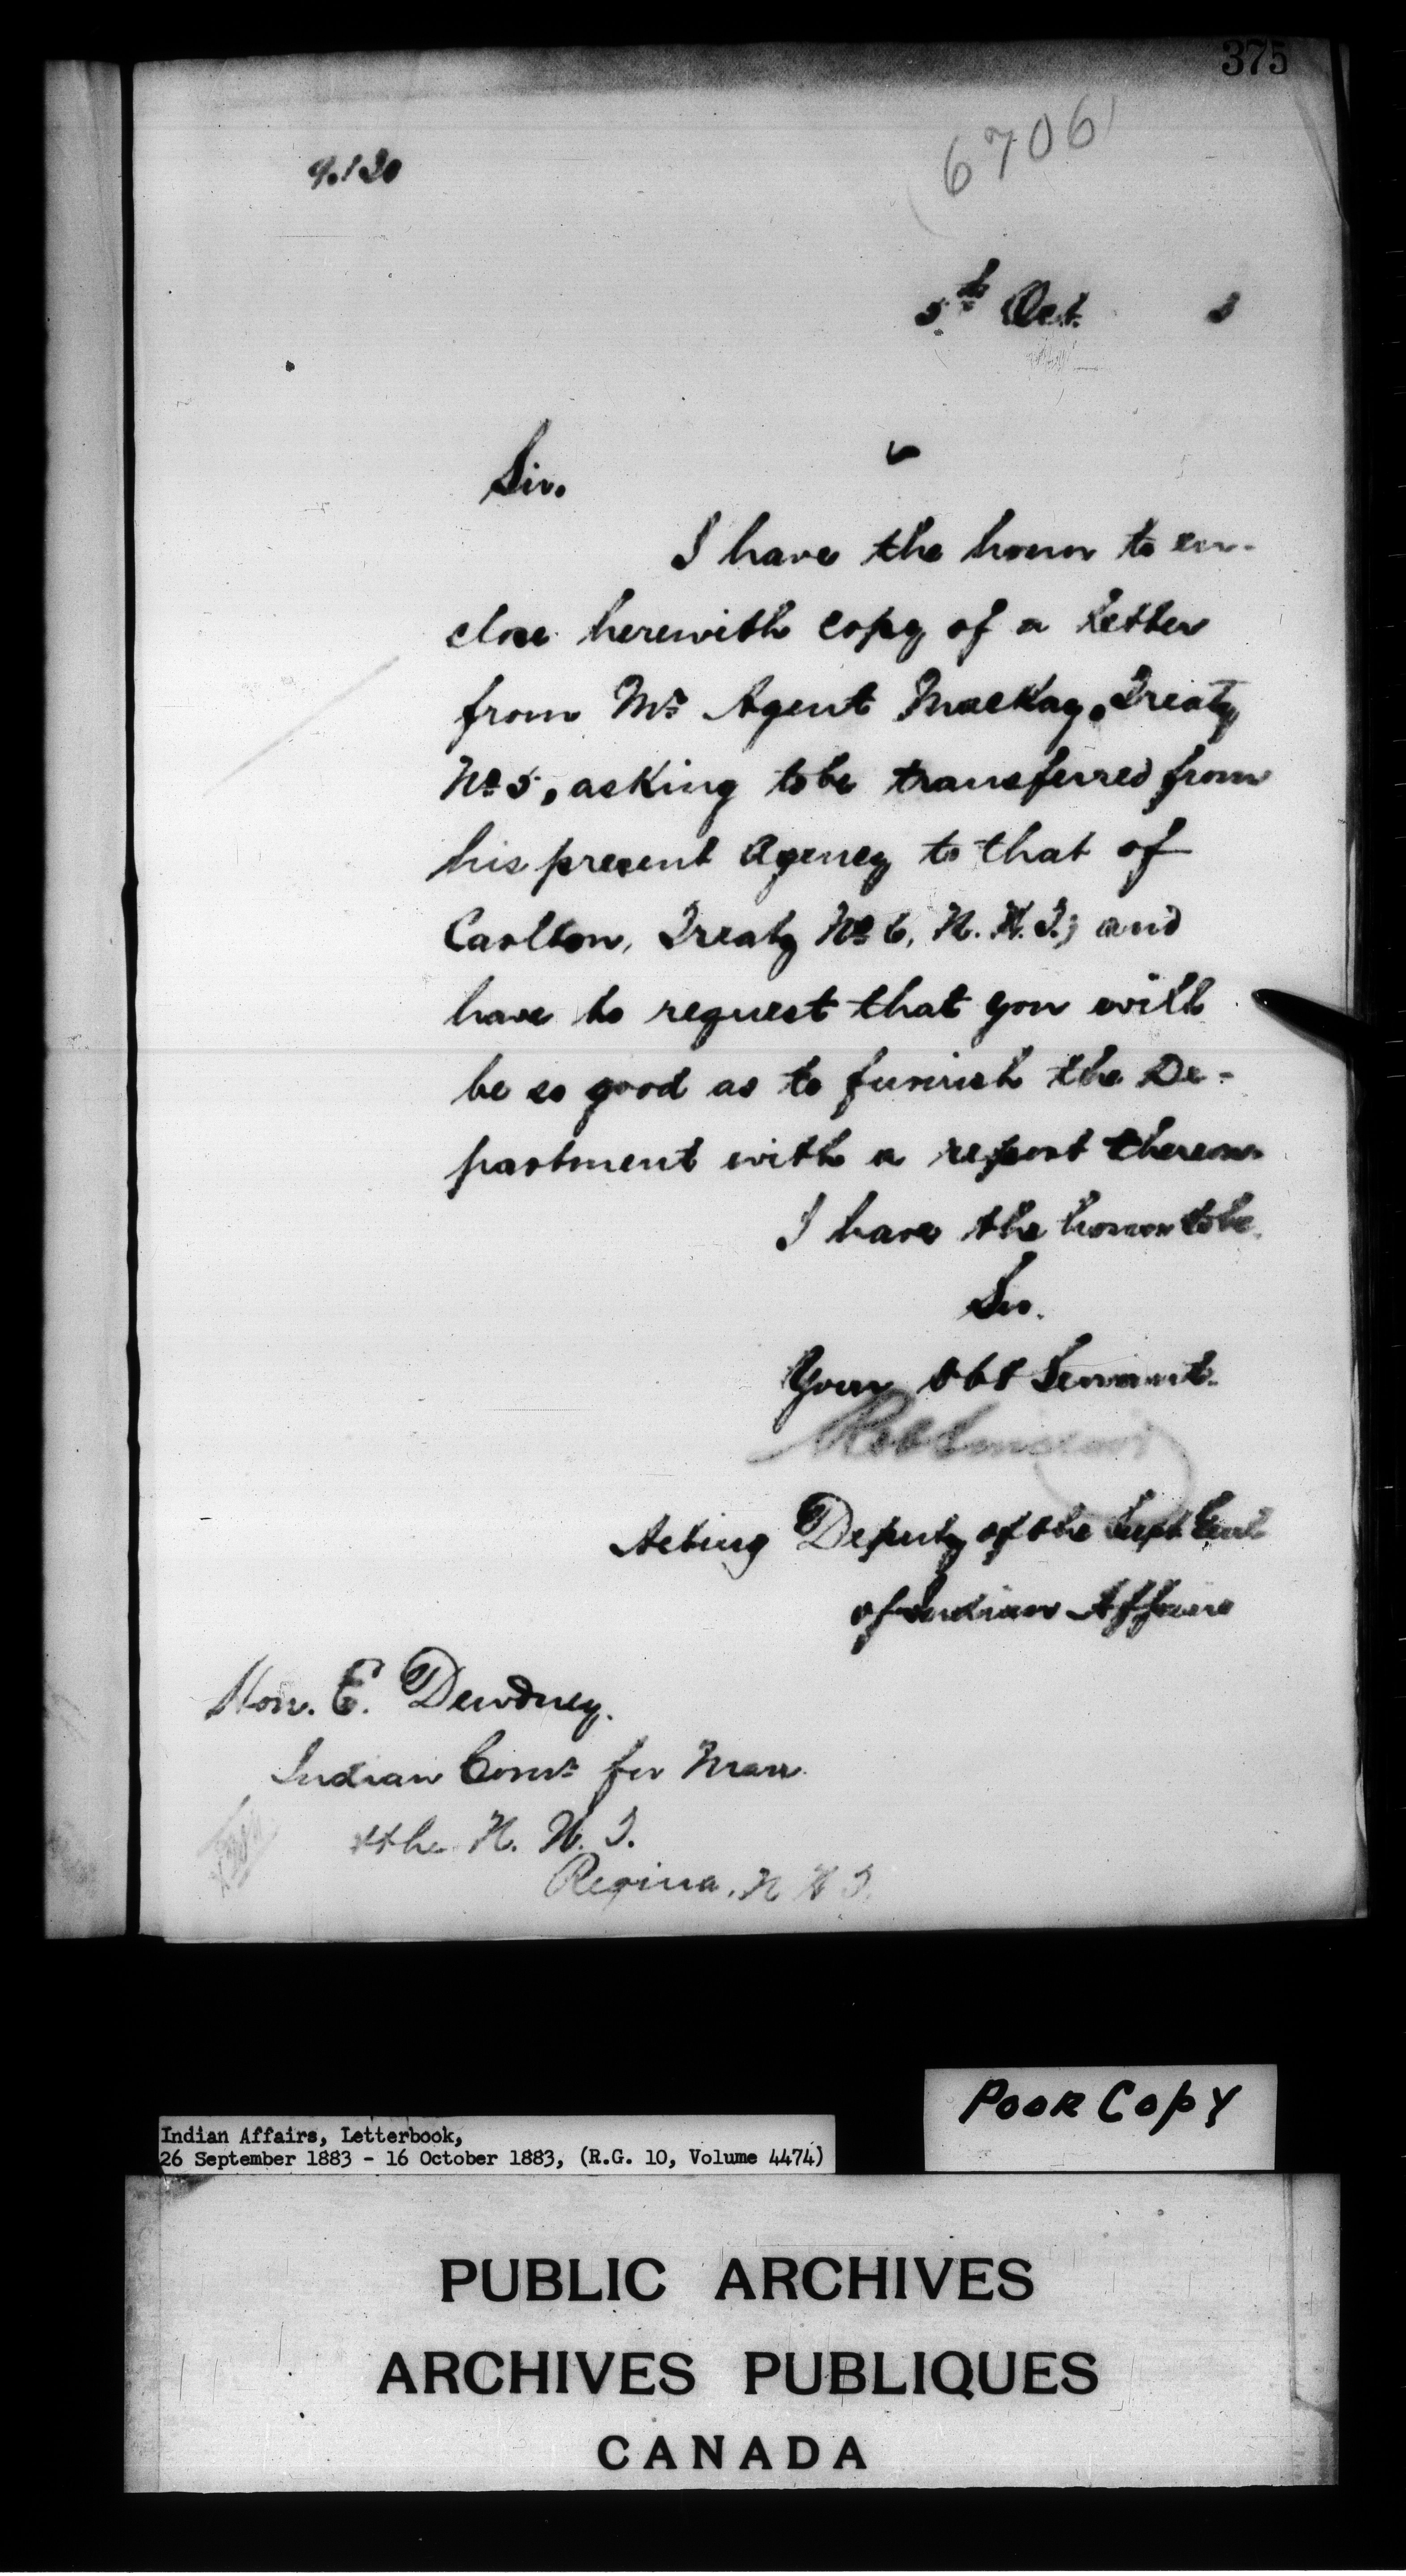 375
6706
9.130
5th Oct. 3
Sir.
I have the honor to en-
close herewith copy of a letter
from Mr Agent MacKay, Treaty
No 5, asking to be transferred from
his present Agency to that of
Carlton, Treaty No 6, N.W.T.; and
have to request that you will
be so good as to furnish the De-
partment with a report thereon
I have the honor to be
Sir.
Your Obt Servant
Acting Deputy of the Supt Genl
of Indian Affairs
Hon. E. Dewdney.
Indian Comr for Man
& the N. W. T.
Regina, N W T.
POOR COPY
Indian Affairs, Letterbook,
26 September 1883 - 16 October 1883, (R.G. 10, Volume 4474)
PUBLIC ARCHIVES
ARCHIVES PUBLIQUES
CANADA